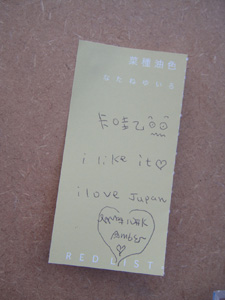 菜種油色
なたねゆいろ
卡哇乙
i like it♡
i love Japan
RED LIST